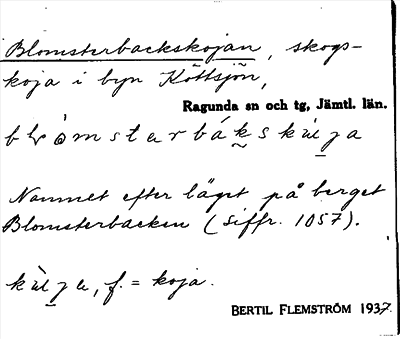 Blomsterbackskojan, skogs-
koja i byn Köttsjön,
Ragunda sn och tg, Jämtl. län.
Namnet efter läget på berget
Blomsterbacken (siffr. 1057).
f. = koja.
BERTIL FLEMSTRÖM 1937.